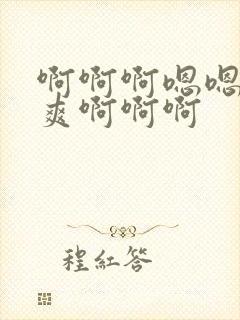 啊啊啊嗯嗯
爽啊啊啊
程红答